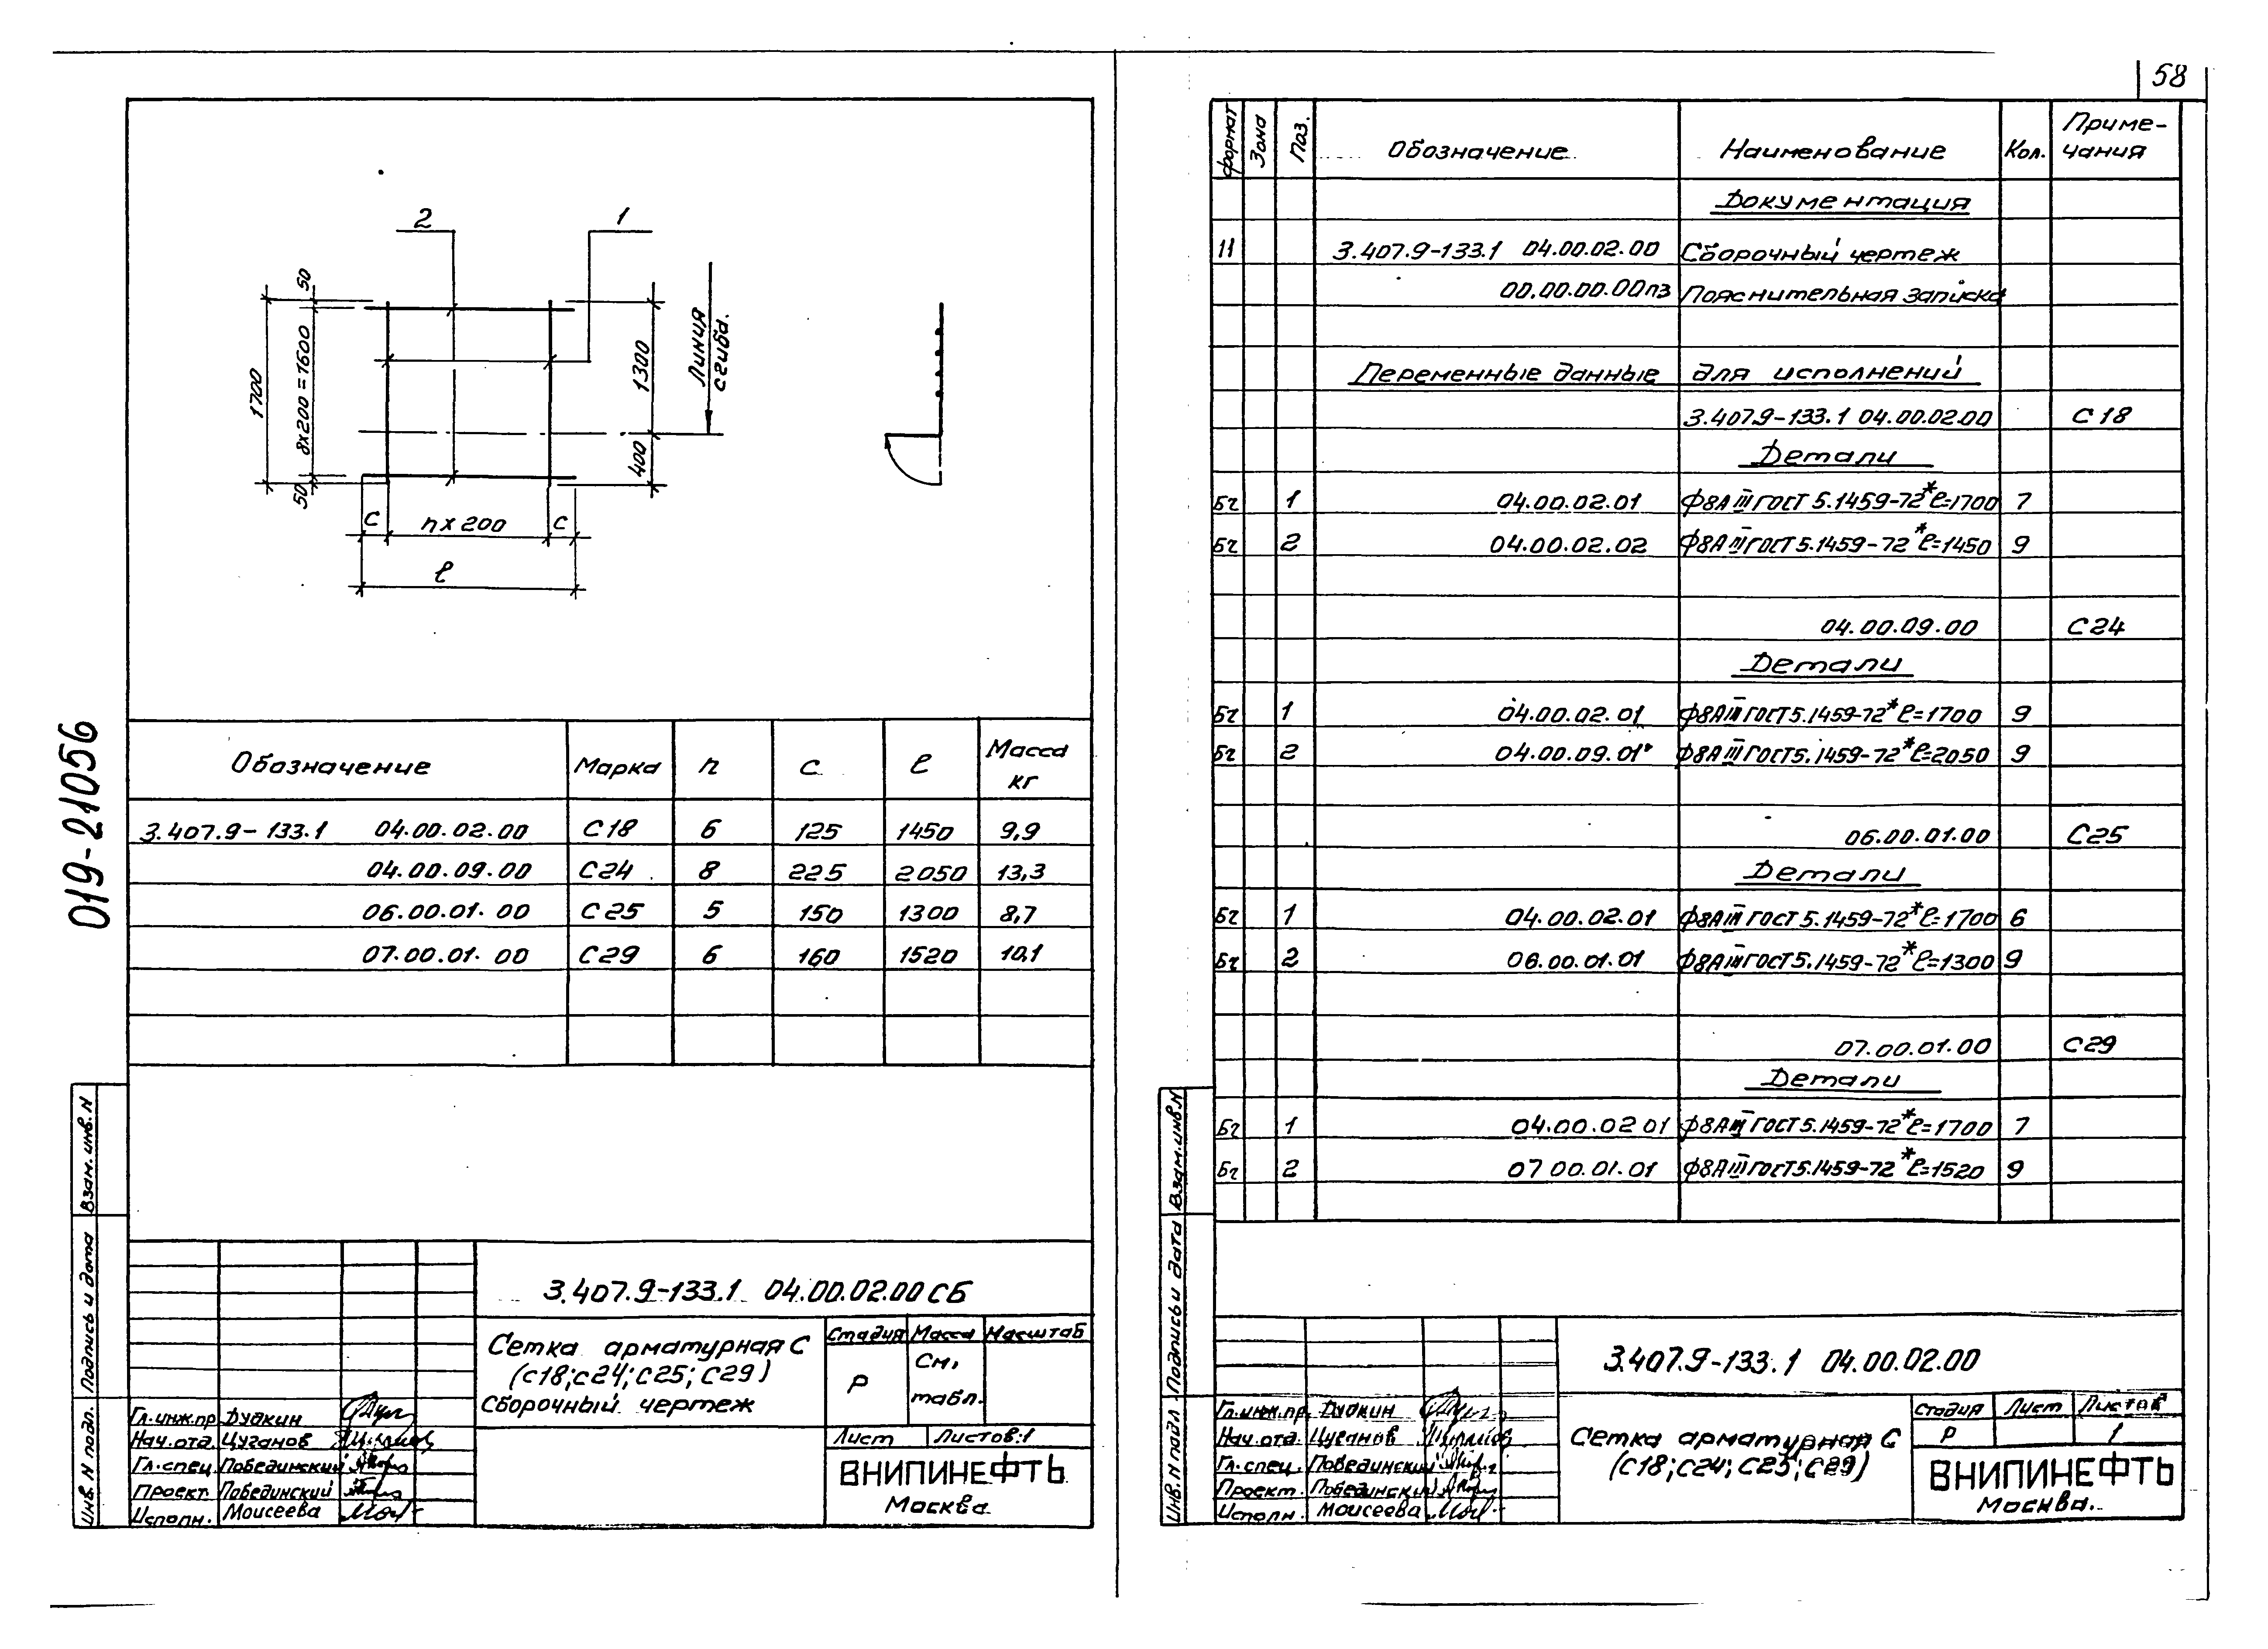 58
2
1
50
8х200=1600
50
1700
1300
400
Линия
сгиба.
с
n х 200
с
ℓ
019-21056
Обозначение Марка n с ℓ Масса кг
3.407.9-133.1 04.00.02.00 С18 6 125 1450 9,9
04.00.09.00 С24 8 225 2050 13,3
06.00.01.00 С25 5 150 1300 8,7
07.00.01.00 С29 6 160 1520 10,1
Взам. инв. N
Подпись и дата
Инв. N подл.
3.407.9-133.1 04.00.02.00СБ
Сетка арматурная С
(с18;с24;с25; с29)
Сборочный чертеж
Стадия Масса Масштаб
Р См. табл.
Лист Листов:1
ВНИПИНЕФТЬ
Москва
Гл.инж.пр Дудкин
Нач.отд. Цуганов
Гл.спец. Побединский
Проект. Побединский
Исполн. Моисеева
формат Зона Поз. Обозначение Наименование Кол. Приме-
чания
Документация
11 3.407.9-133.1 04.00.02.00 Сборочный чертеж
00.00.00.00пз Пояснительная записка
Переменные данные для исполнений
3.407.9-133.1 04.00.02.00 С18
Детали
Бч 1 04.00.02.01 ф8АIII ГОСТ 5.1459-72* ℓ=1700 7
Бч 2 04.00.02.02 ф8АIII ГОСТ 5.1459-72* ℓ=1450 9
04.00.09.00 С24
Детали
Бч 1 04.00.02.01 ф8АIII ГОСТ 5.1459-72* ℓ=1700 9
Бч 2 04.00.09.01 ф8АIII ГОСТ 5.1459-72* ℓ=2050 9
06.00.01.00 С25
Детали
Бч 1 04.00.02.01 ф8АIII ГОСТ 5.1459-72* ℓ=1700 6
Бч 2 06.00.01.01 ф8АIII ГОСТ 5.1459-72* ℓ=1300 9
07.00.01.00 С29
Детали
Бч 1 04.00.02 01 ф8АIII ГОСТ 5.1459-72* ℓ=1700 7
Бч 2 07 00.01.01 ф8АIII ГОСТ 5.1459-72* ℓ=1520 9
Взам.инв.N
Подпись и дата
Инв. N подл
3.407.9-133.1 04.00.02.00
Сетка арматурная С
(с18;с24;с25;с29)
Стадия Лист Листов
Р 1
ВНИПИНЕФТЬ
Москва.
Гл.инж.пр. Дудкин
Нач.отд. Цуганов
Гл.спец. Побединский
Проект. Побединский
Исполн. Моисеева